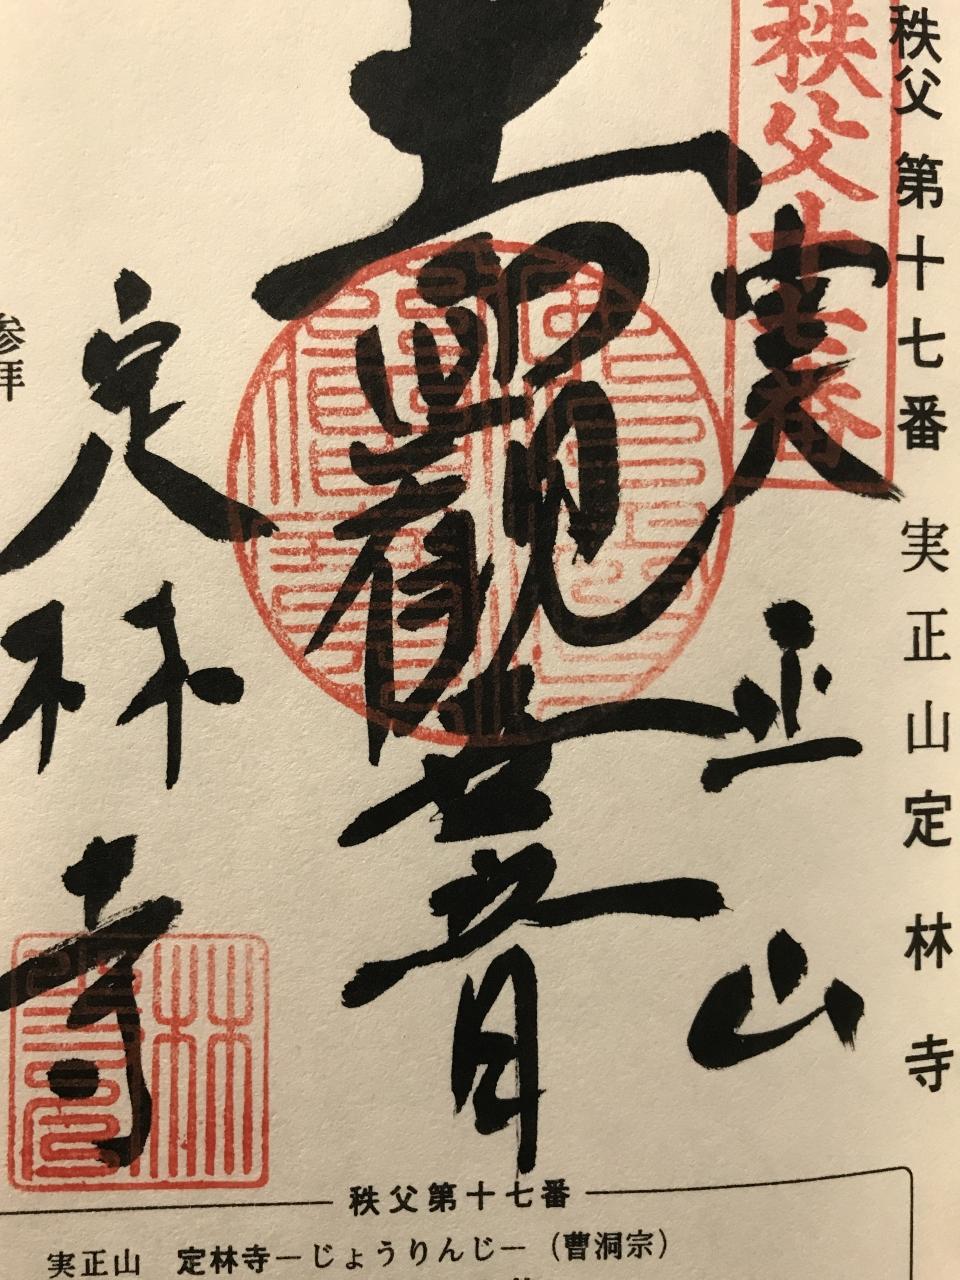 秩父第十七番 実正山定林寺
秩父十七番
実正山
観音
定林寺
参拝
秩父第十七番
実正山 定林寺ーじょうりんじー（曹洞宗）